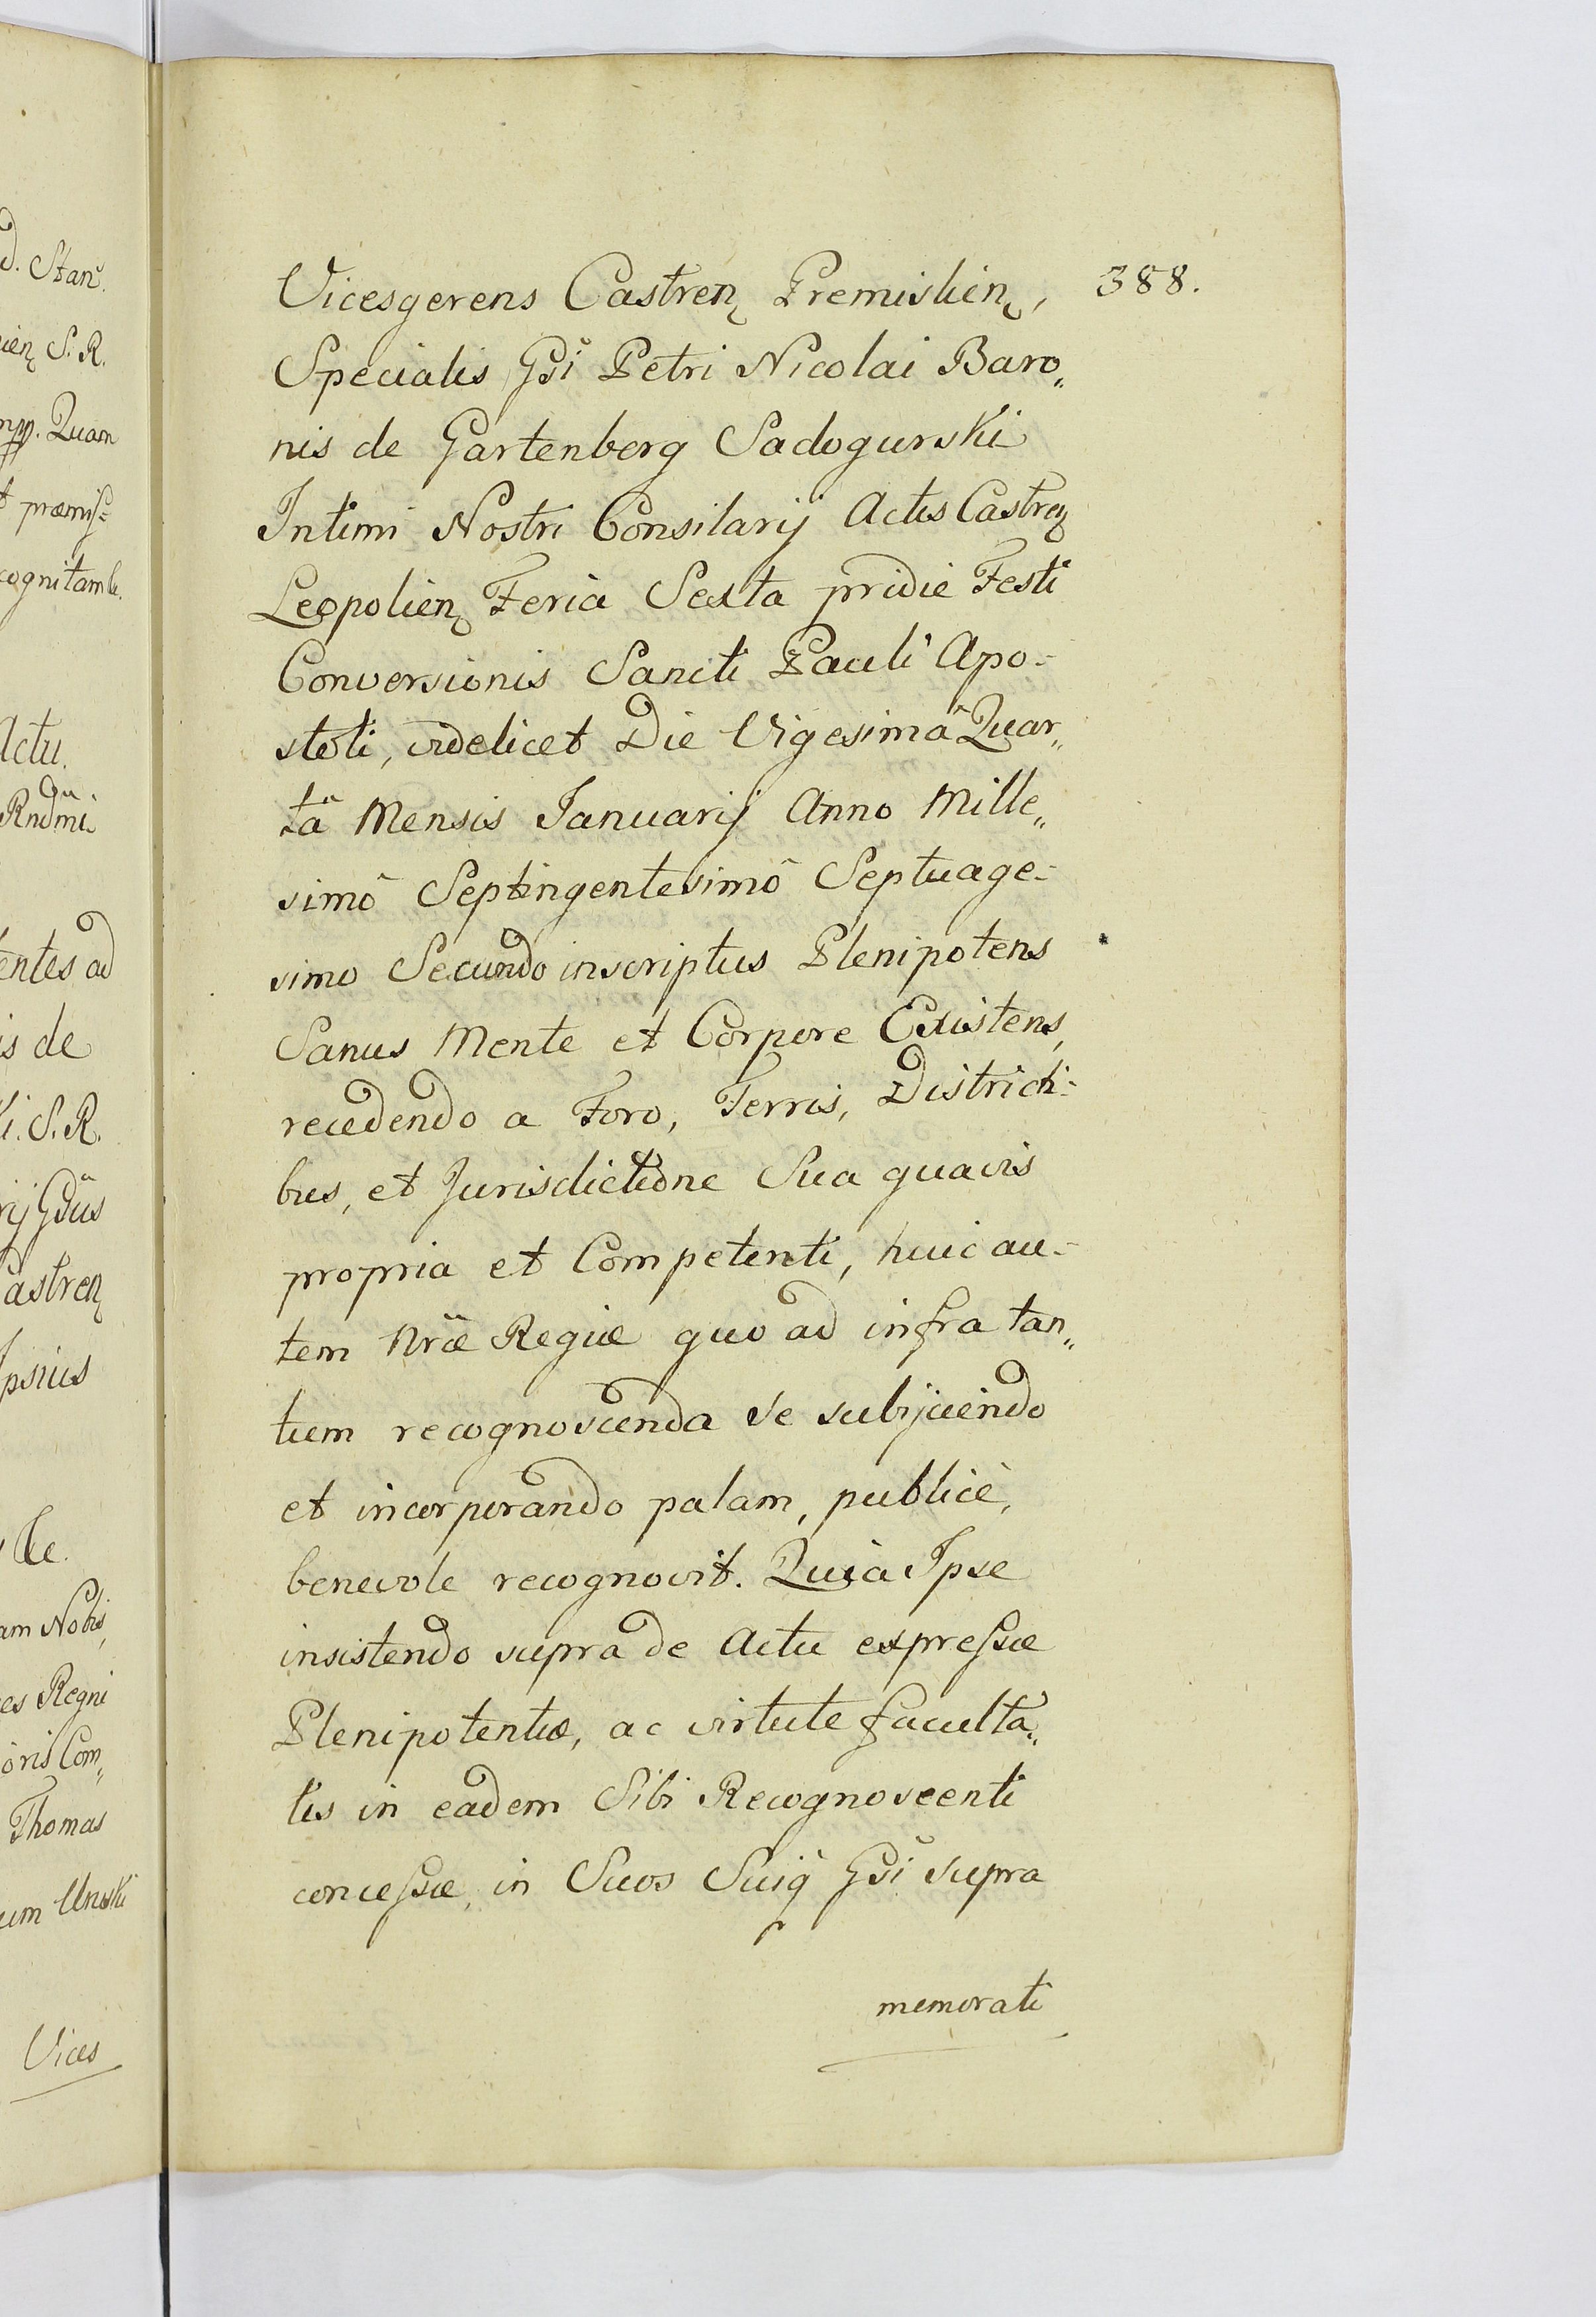 d. Stan̄.
ien S. R.
mpp. Quam
t præmiſ=
cognitam le.
Actu.
Qu.
Rndmi
entes ad
is de
ki. S. R.
rij Gsûs
Castren
Ipsius
le.
am Nobis,
es Regni
oris Com„
Thomas
um Unski
Vices
388.
Vicesgerens Castren Premislien,
Specialis Gsi Petri Nicolai Baro„
nis de Gartenberg Sadogurski
Intimi Nostri Consilarij Actis Castren
Leopolien Feria Sexta pridie Festi
Conversionis Sancti Pauli Apo-
stoli, videlicet Die Vigesimâ Quar„
tâ Mensis Januarij Anno Mille„
simô Septingentesimô Septuage-
simo Secundo inscriptus Plenipotens
Sanus Mente et Corpore Existens,
recedendo a Foro, Terris, Districti-
bus, et Jurisdictione Sua quavis
propria et Competenti, huic au-
tem Nræ Regiæ quo ad infra tan„
tum recognoscenda se subijciendo
et incorporando palam, publicè,
benevole recognovit. Quia Ipse
insistendo supra de Actu expreſsæ
Plenipotentiæ, ac virtute faculta„
tis in eadem Sibi Recognoscenti
conceſsæ, in Suos Suiq̃ Gsi supra
memorati